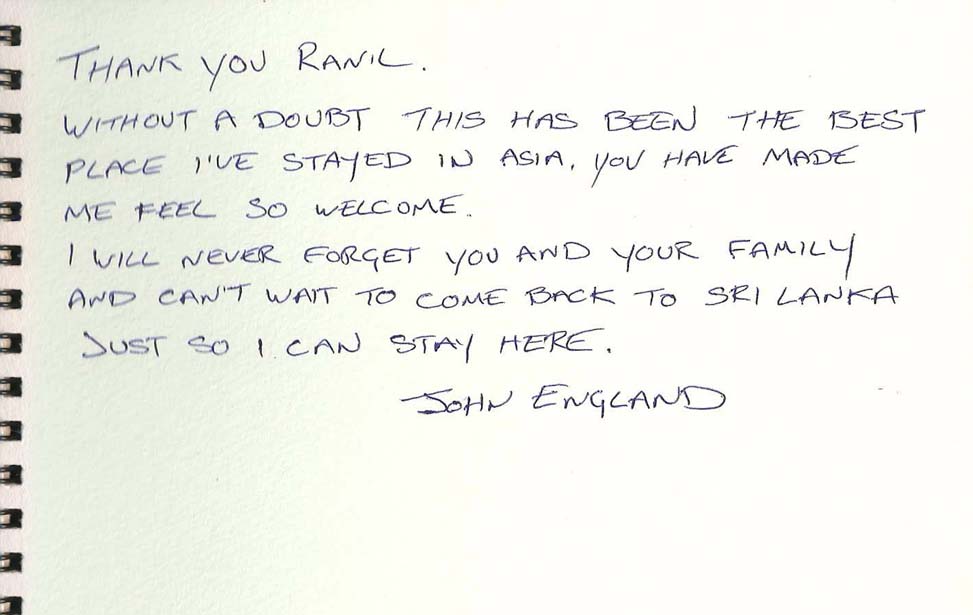 THANK YOU RANIL.
WITHOUT A DOUBT THIS HAS BEEN THE BEST
PLACE I'VE STAYED IN ASIA, YOU HAVE MADE
ME FEEL SO WELCOME.
I WILL NEVER FORGET YOU AND YOUR FAMILY
AND CAN'T WAIT TO COME BACK TO SRI LANKA
JUST SO I CAN STAY HERE.
JOHN ENGLAND